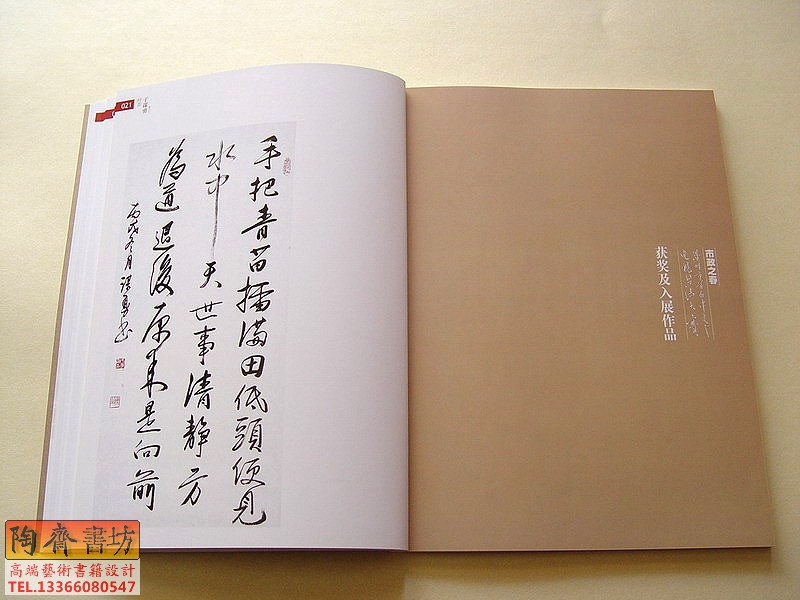 021
手把青苗播满田低頭便見
水中天世事清靜方
為道退後原来是向前
丙戌冬月
市政之春
获奖及入展作品
陶齋書坊
高端藝術書籍設計
TEL.13366080547